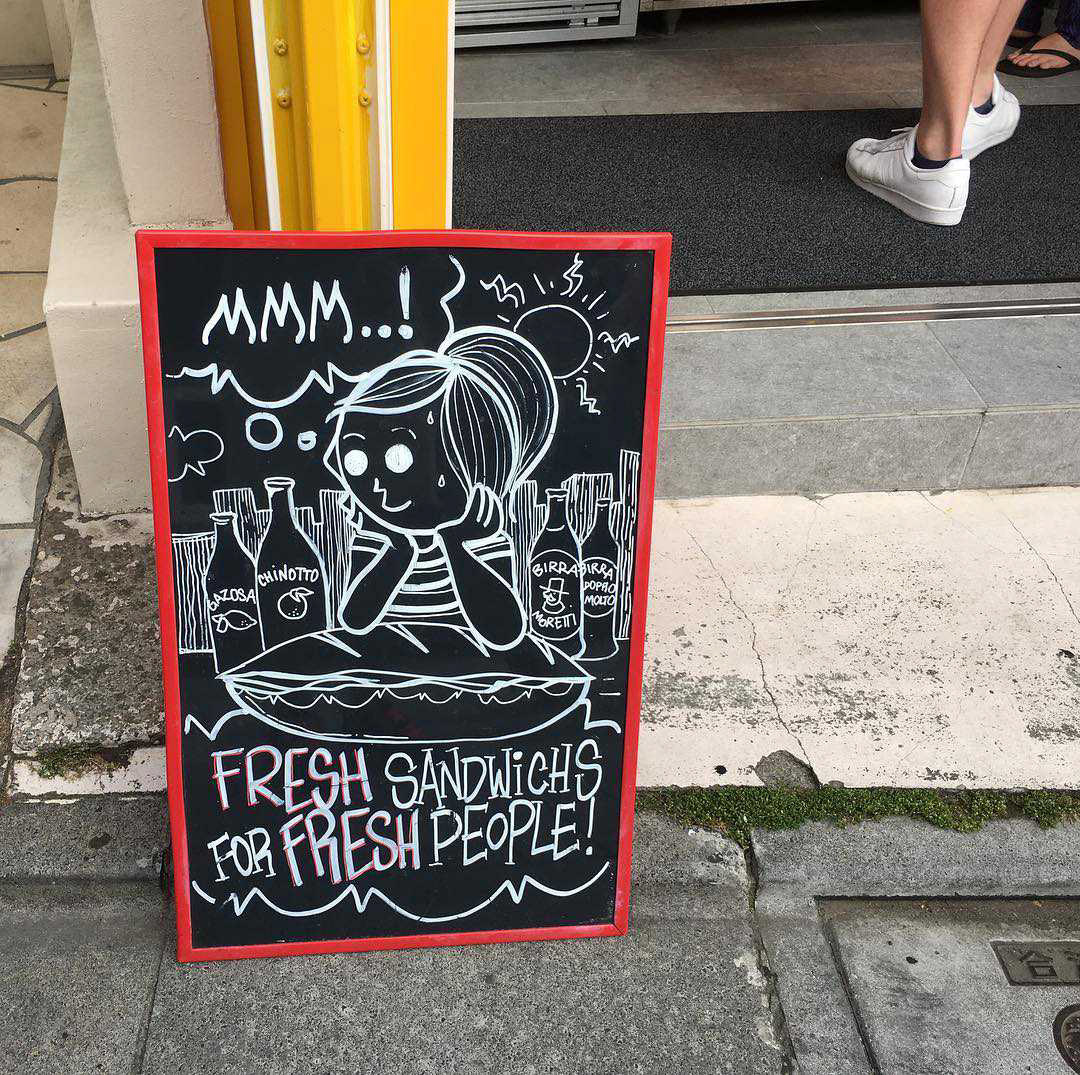 MMM...!
GAZOSA
CHINOTTO
BIRRA
MORETTI
BIRRA
DOPPIO
MOLTO
FRESH SANDWICHS
FOR FRESH PEOPLE!
合